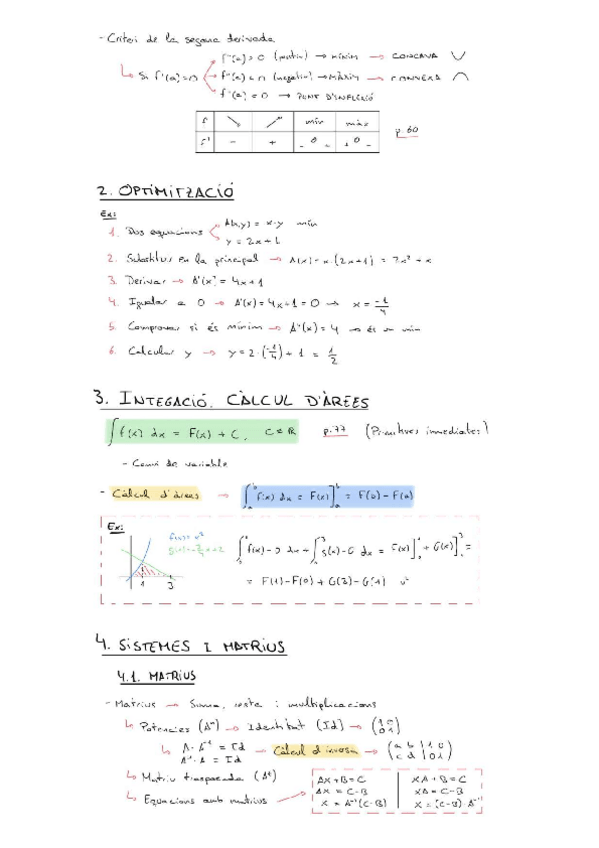 - Criteri de la segona derivada
f''(a) > 0 (positiu) → MÍNIM → CONCAVA ∪
↳ Si f'(a) = 0 f''(a) < 0 (negatiu) → MÀXIM → CONVEXA ∩
f''(a) = 0 → PUNT D'INFLEXIÓ
f ↘ ↗ mín màx
f' - + - 0 + + 0 - p. 60
2. OPTIMITZACIÓ
Ex:
1. Dos equacions A(x,y) = x·y mín
y = 2x+1
2. Substituir en la principal → A(x) = x·(2x+1) = 2x² + x
3. Derivar → A'(x) = 4x+1
4. Igualar a 0 → A'(x) = 4x+1 = 0 → x = -1/4
5. Comprovar si és mínim → A''(x) = 4 → és un mín
6. Calcular y → y = 2·(-1/4) + 1 = 1/2
3. INTEGACIÓ. CÀLCUL D'ÀREES
∫ f(x) dx = F(x) + C, C ∈ ℝ p. 77 (Primitives immediates)
- Canvi de variable
- Càlcul d'àrees → ∫ₐᵇ f(x) dx = F(x)]ₐᵇ = F(b) - F(a)
Ex:
f(x) = x²
∫₀¹ f(x) - 0 dx + ∫₁³ g(x) - 0 dx = F(x)]₀¹ + G(x)]₁³ =
1 3
= F(1) - F(0) + G(3) - G(1) u²
4. SISTEMES I MATRIUS
4.1. MATRIUS
- Matrius → Suma, resta i multiplicacions
↳ Potències (Aⁿ) → Identitat (Id) → (1 0 / 0 1)
↳ A · A⁻¹ = Id → Càlcul d'inversa → (a b | 1 0 / c d | 0 1)
A⁻¹ · A = Id
↳ Matriu trasposada (Aᵗ)
↳ Equacions amb matrius →
AX + B = C | XA + B = C
AX = C - B | XA = C - B
X = A⁻¹(C - B) | X = (C - B) · A⁻¹